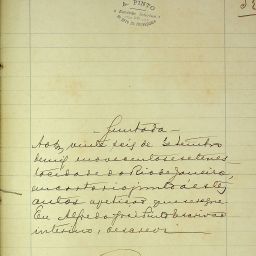 A. PINTO
Juntada
Aos vinte seis de Setembro
de mil e novecentos e sete nes
ta cidade do Rio de Janeiro,
em cartorio junto a estes
autos a petição que segue
Eu Alfredo José Pinto Escrivão
interino, o escrevi